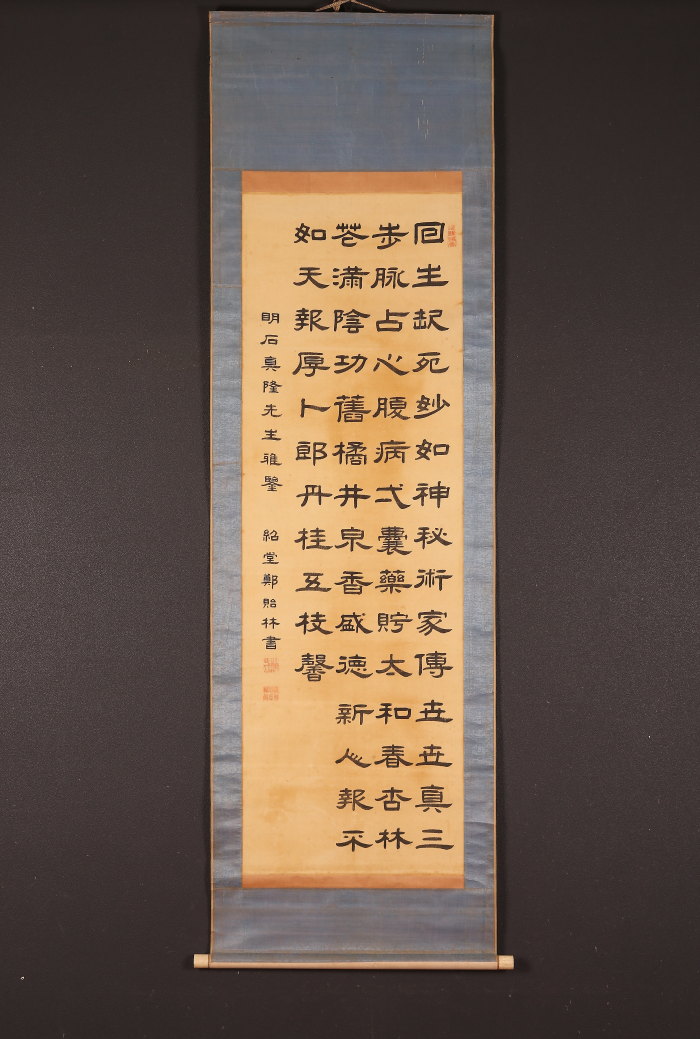 回生起死妙如神秘術家傳世世真三
步脉占心腹病弌囊藥貯太和春杏林
花滿陰功舊橘井泉香盛德新心報不
如天報厚卜郎丹桂五枝馨
明石真隆先生雅鑒 紹堂鄭貽林書